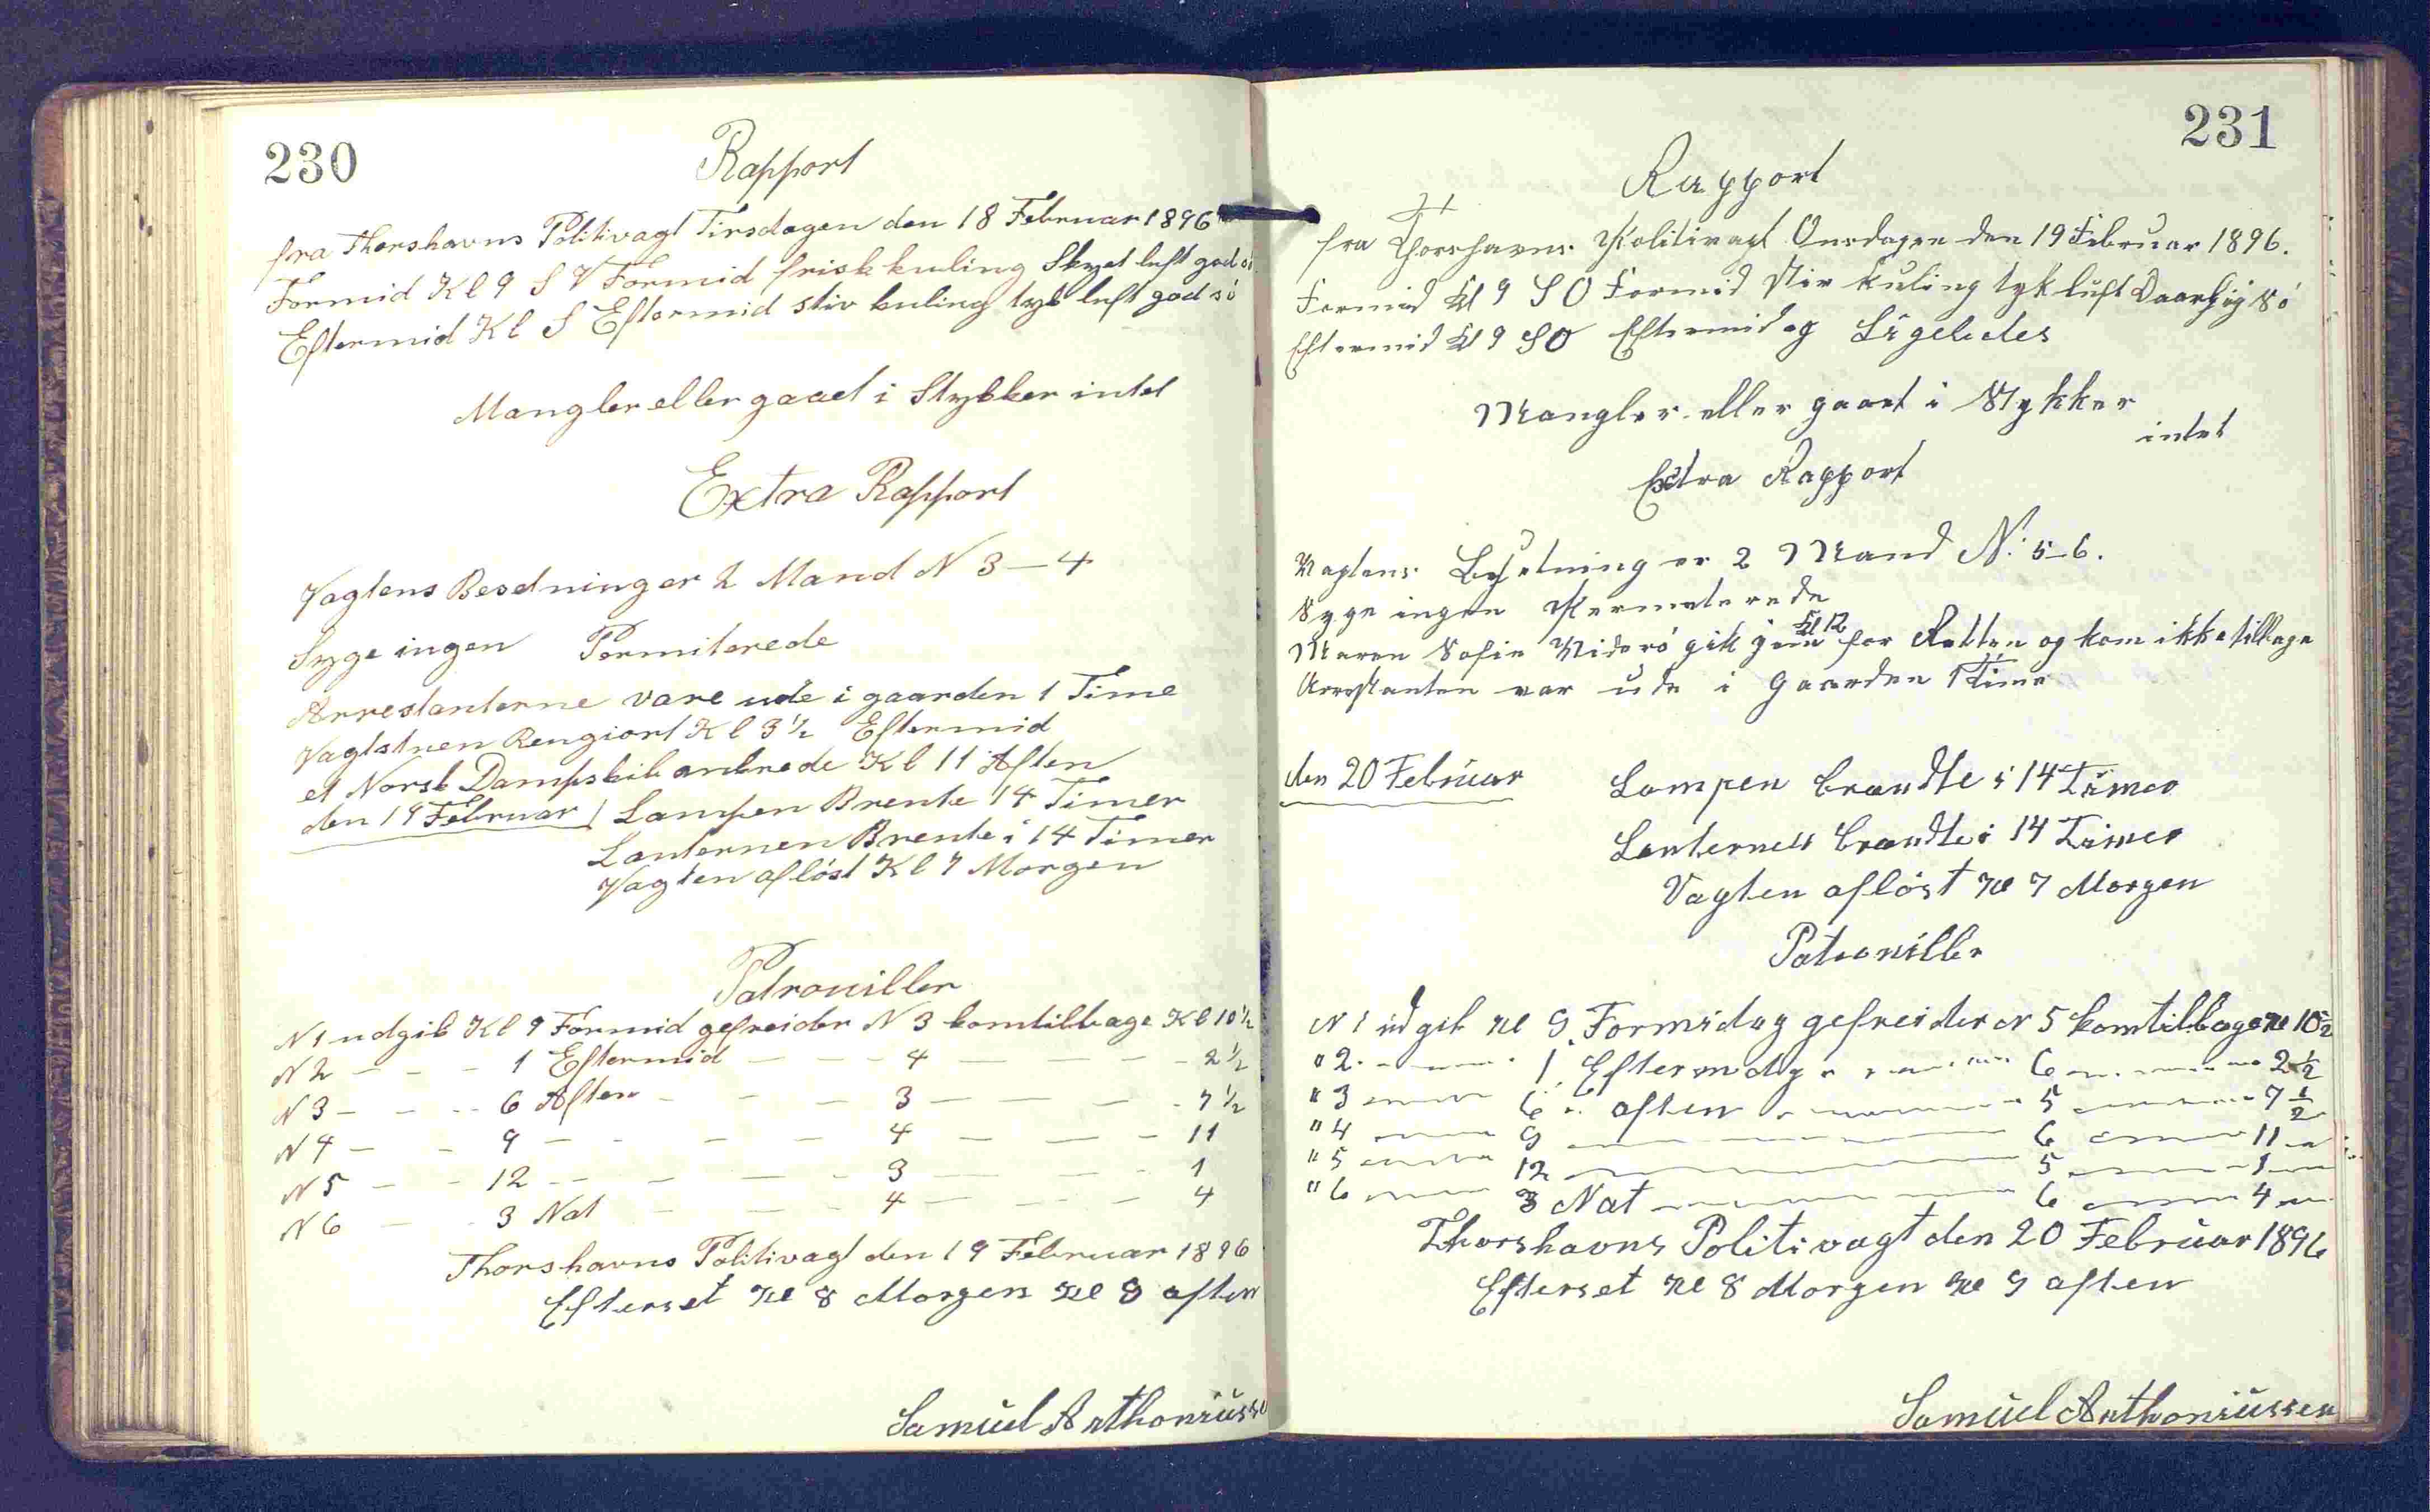 230
Rapport
fra Thorshavns Politivagt Tirsdagen den 18 Februar 1896
Formid Kl 9 S V Formid frisk kuling Skyet luft god sö
Eftermid Kl S Eftermid stiv kuling tyk luft god sö
Mangler eller gaaet i Stykker intet
Extra Rapport
Vagtens Besetning er 2 Mand N 3 — 4
Syge ingen Permiterede
Arrestanterne vare ude i gaarden 1 Time
Vagtstuen Rengiort Kl 3 1/2 Eftermid
et Norsk Dampskib ankrede Kl 11 Aften
den 19 Februar / Lampen Brente 14 Timer
Lanternen Brente i 14 Timer
Vagten aflöst Kl 7 Morgen
Patrouiller
N 1 udgik Kl 9 Formid gefreider N 3 kom tilbage Kl 10 1/2
N 2 — — - 1 Eftermid — — - 4 — — — - 2 1/2
N 3 - - -- 6 Aften - - — 3 — — — - 7 1/2
N 4 — - 9 — - — — 4 — — - 11
N 5 - - 12 -- — — - 3 — — - 1
N 6 — - 3 Nat - — - 4 — - - 4
Thorshavns Politivagt den 19 Februar 1896
Efterset Kl 8 Morgen Kl 9 aften
Samuel Anthoniusse
231
Rapport
fra Thorshavns Politivagt Onsdagen den 19 Februar 1896.
Formid Kl 9 S O Formid Stiv kuling tyk luft Daarlig Sö
Eftermid Kl 9 S O Eftermidag Ligeledes
Mangler eller gaaet i Stykker
intet
Extra Rapport
Vagtens Besetning er 2 Mand N: 5-6.
Syge ingen Permeterede
Kl 12
Maren Sofie Viderö gik hjem for Retten og kom ikke tilbage
Arrestanten var ude i Gaarden 1 Time
den 20 Februar Lampen brændte i 14 Timer
Lanternen brændte i 14 Timer
Vagten aflöst Kl 7 Morgen
Patrouiller
N 1 udgik Kl 9 Formidag gefreider N 5 kom tilbage Kl 10 1/2
" 2 - — 1 Eftermdg " — 6 — 2 1/2
" 3 — 6 " aften — 5 — 7 1/2
" 4 — 9 — 6 — 11
" 5 — 12 — 5 — 1
" 6 — 3 Nat — 6 — 4
Thorshavns Politivagt den 20 Februar 1896
Efterset Kl 8 Morgen Kl 9 aften
Samuel Anthoniussen